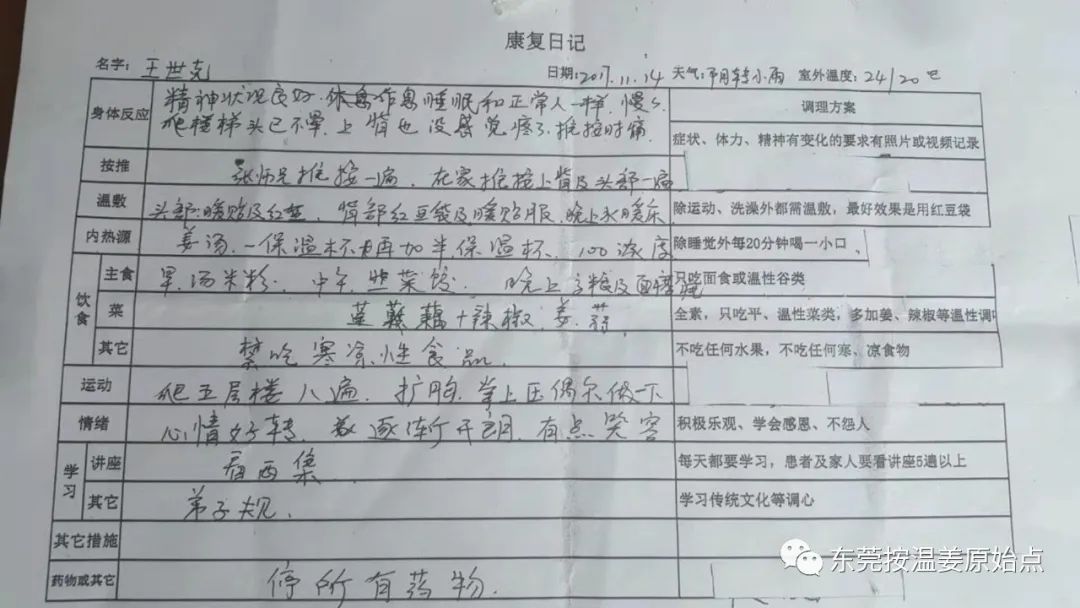 康复日记
名字: 王世克 日期: 2017.11.14 天气: 阴转小雨 室外温度: 24/20 ℃
身体反应 精神状况良好. 作息睡眠和正常人一样, 慢慢 调理方案
爬楼梯头已不晕. 上背也没感觉疼了. 推按时痛 症状、体力、精神有变化的要求有照片或视频记录
按推 张师兄推按一遍. 在家推按上背及头部一遍
温敷 头部:暖贴及红豆. 背部红豆袋及暖贴服. 晚上水暖床 除运动、洗澡外都需温敷，最好效果是用红豆袋
内热源 姜汤. 一保温杯再加半保温杯. 100浓度 除睡觉外每20分钟喝一小口 、
饮食 主食 早. 汤米粉. 中午. 韭菜饺. 晚上 及 只吃面食或温性谷类
菜 莲藕+辣椒. 姜. 全素，只吃平、温性菜类，多加姜、辣椒等温性调
其它 禁吃寒凉性食品. 不吃任何水果，不吃任何寒、凉食物
运动 爬五层楼八遍. 扩胸. 掌上压偶尔做一下
情绪 心情好转. 逐渐开朗. 有点笑容 积极乐观、学会感恩、不怨人
学习 讲座 看两集 每天都要学习，患者及家人要看讲座5遍以上
其它 弟子规. 学习传统文化等调心
其它措施
药物或其它 停所有药物.
东莞按温姜原始点